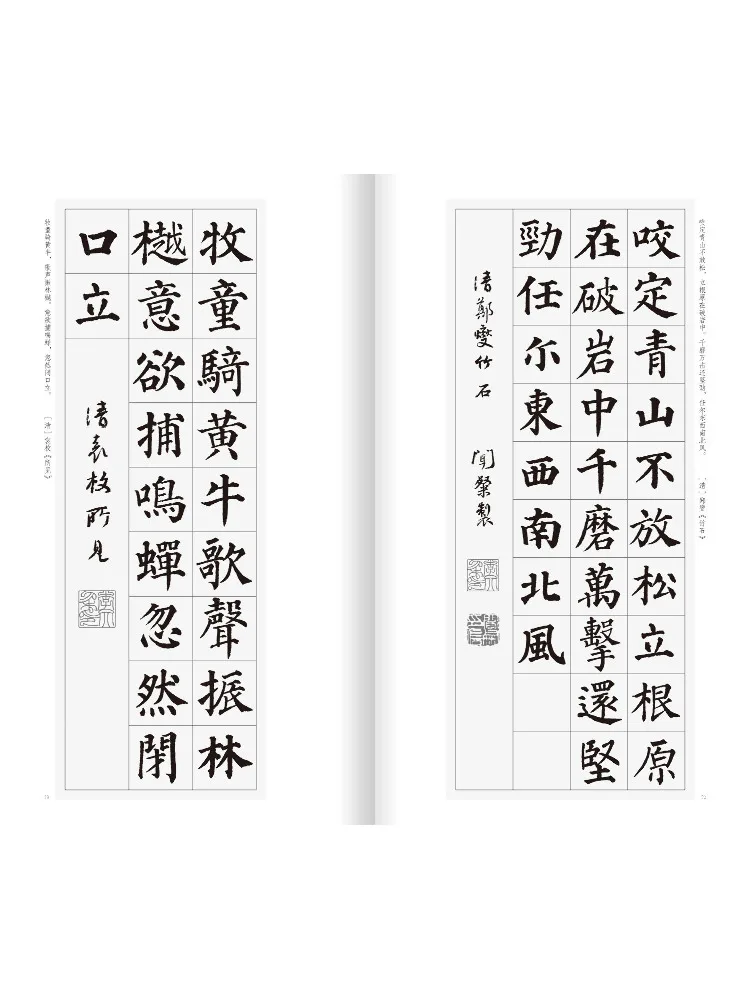 咬定青山不放松，立根原在破岩中。千磨万击还坚劲，任尔东西南北风。 〔清〕郑燮《竹石》
咬定青山不放松立根原
在破岩中千磨萬擊還堅
勁任尓東西南北風
清鄭燮竹石
牧童騎黄牛歌聲振林
樾意欲捕鳴蟬忽然閉
口立
清袁枚所見
牧童骑黄牛，歌声振林樾。意欲捕鸣蝉，忽然闭口立。 〔清〕袁枚《所见》